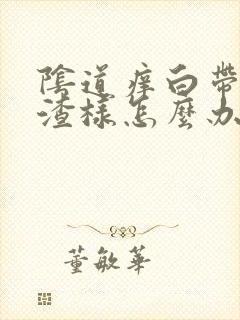 陰道痒白帶
渣樣怎麼办
董敏華